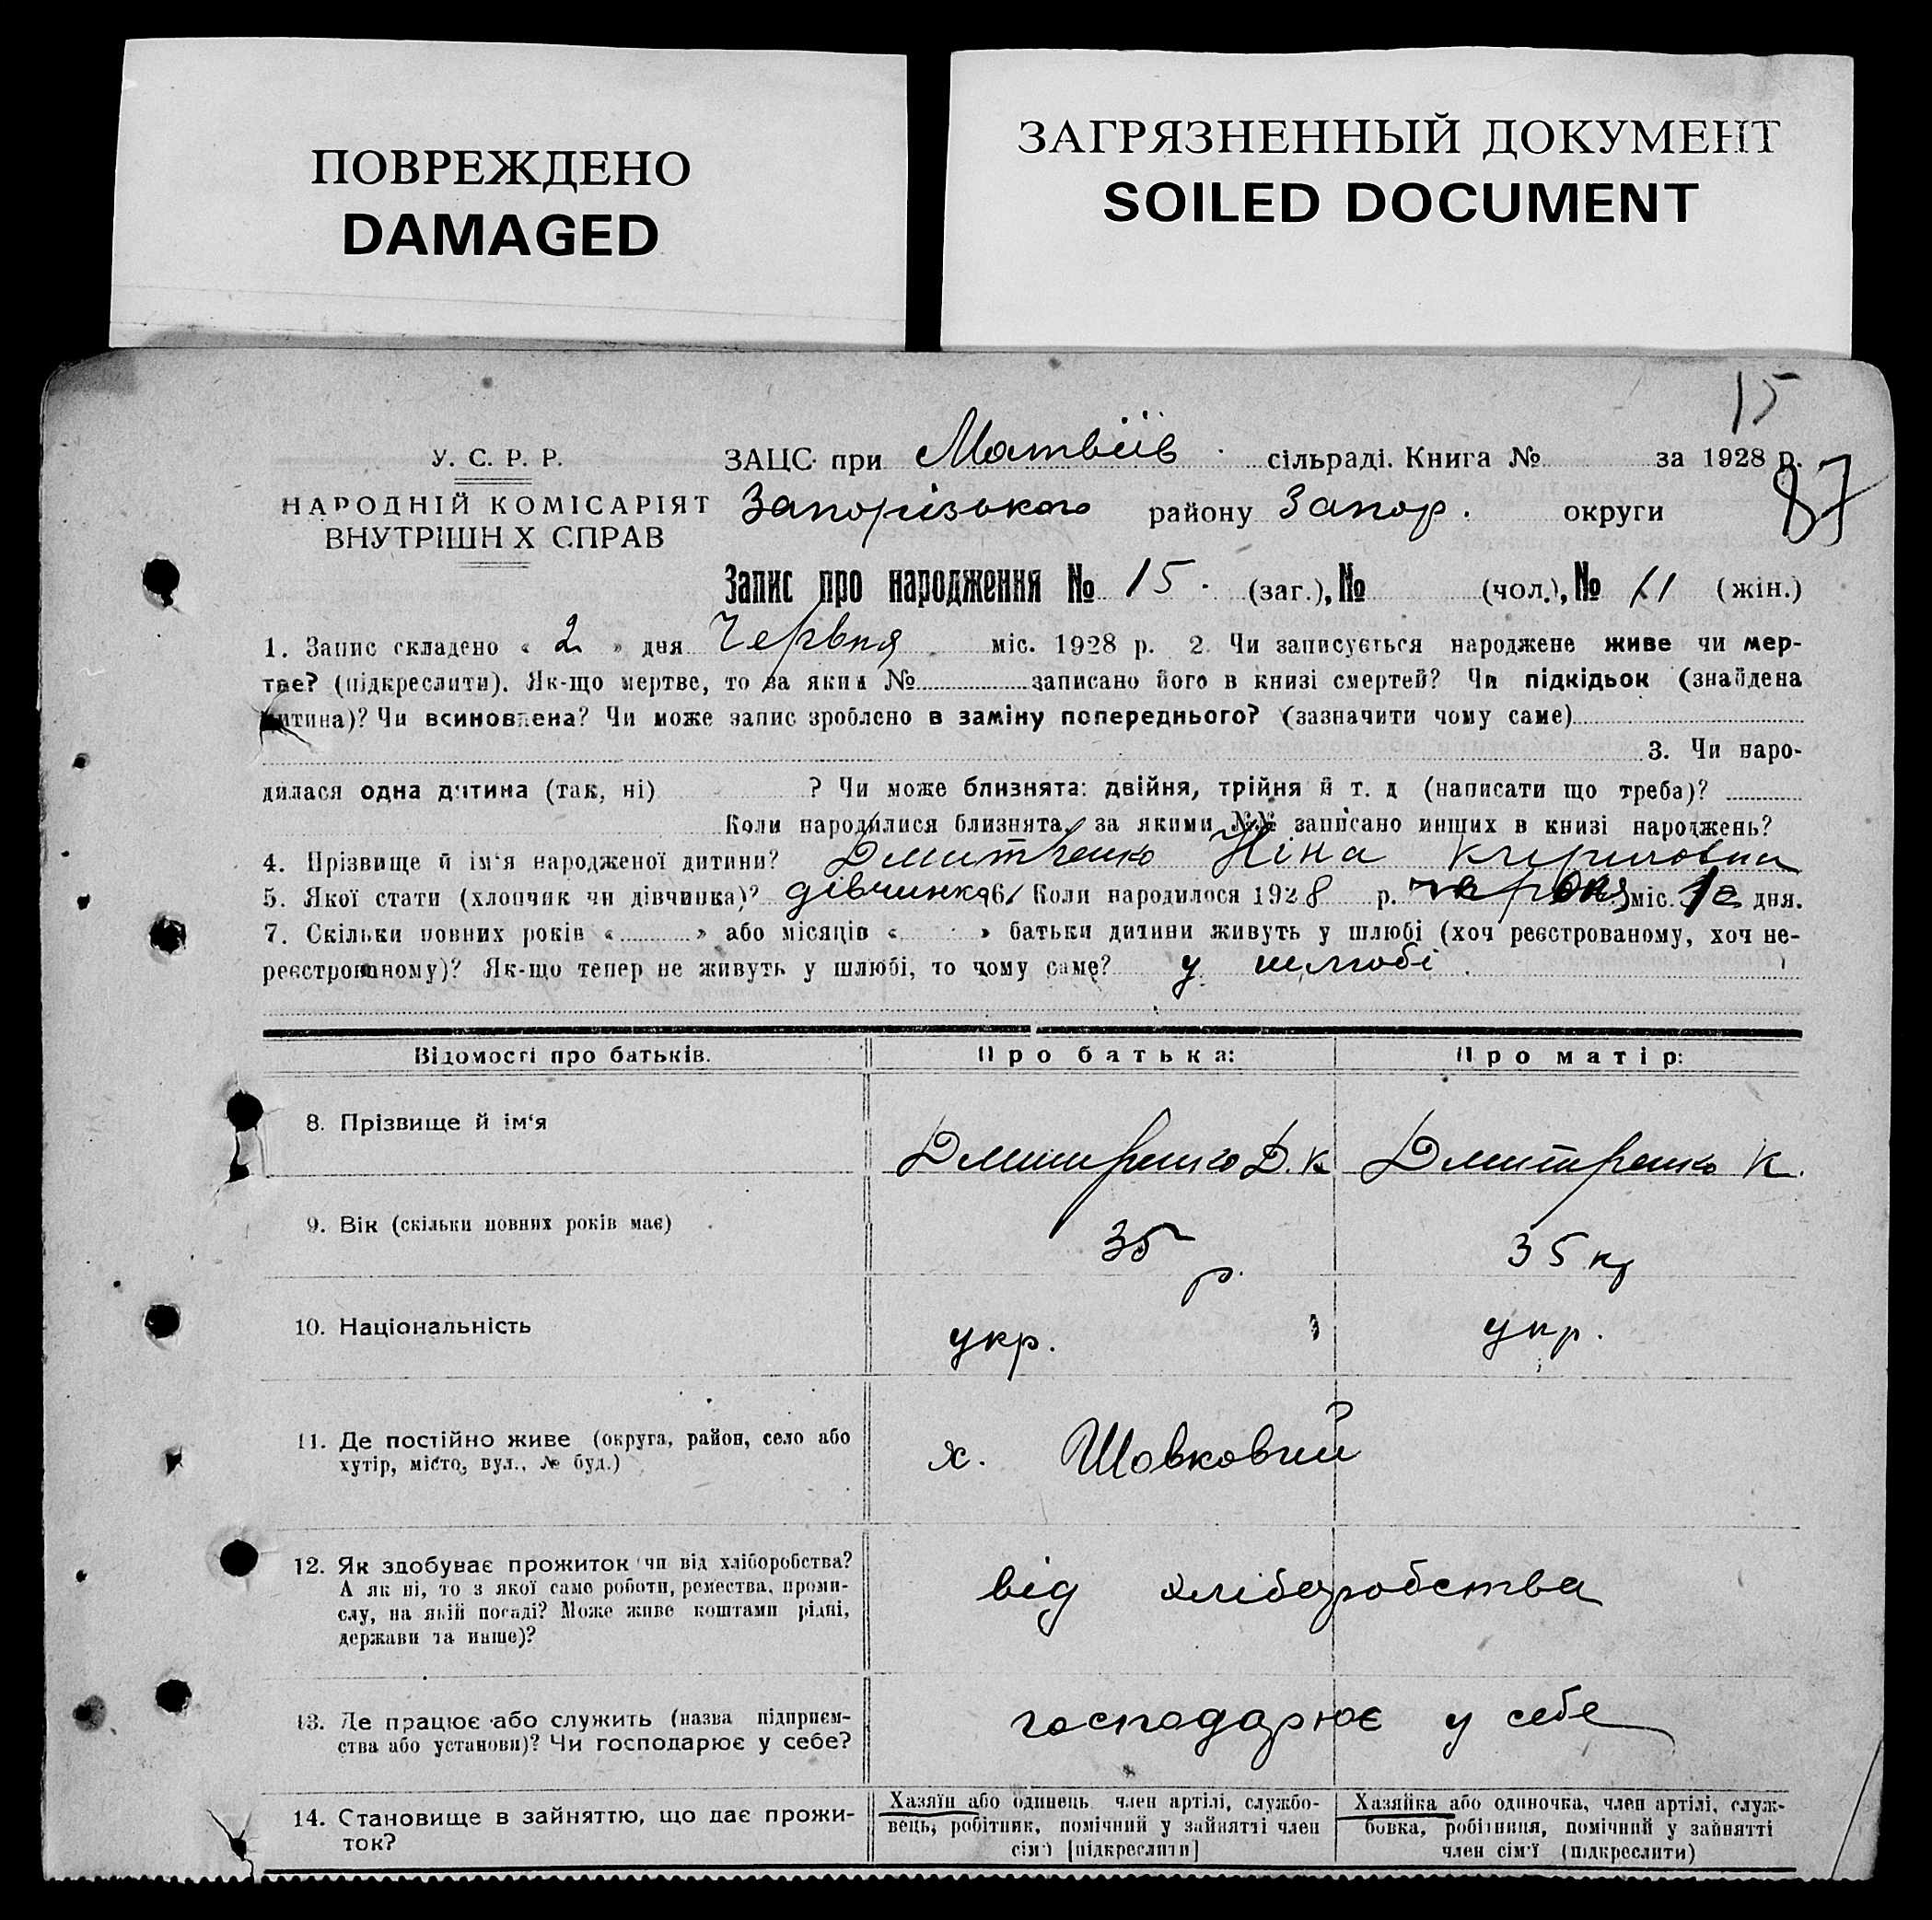 ПОВРЕЖДЕНО
DAMAGED
ЗАГРЯЗНЕННЫЙ ДОКУМЕНТ
SOILED DOCUMENT
15
У. С. Р. Р.
НАРОДНІЙ КОМІСАРІЯТ
ВНУТРІШН Х СПРАВ
ЗАЦС при Матвіїв сільраді. Книга № за 1928 р.
Запорізького району Запор. округи
87
Запис про народження № 15. (заг.), № (чол.), № 11 (жін.)
1. Запис складено « 2 » дня Червня міс. 1928 р. 2. Чи записується народжене живе чи мер-
тве? (підкреслити). Як-що мертве, то за яким № записано його в книзі смертей? Чи підкідьок (знайдена
дитина)? Чи всиновлена? Чи може запис зроблено в заміну попереднього? (зазначити чому саме)
3. Чи наро-
дилася одна дитина (так, ні) ? Чи може близнята: двійня, трійня й т. д (написати що треба)?
Коли народилися близнята, за якими №№ записано инших в книзі народжень?
4. Прізвище й ім‘я народженої дитини? Дмитренко Ніна
5. Якої стати (хлопчик чи дівчинка)? дівчинка 6. Коли народилося 1928 р. червня міс. дня.
7. Скільки повних років « » або місяців « » батьки дитини живуть у шлюбі (хоч реєстрованому, хоч не-
реєстрованому)? Як-що тепер не живуть у шлюбі, то чому саме? у шлюбі.
Відомості про батьків. Про батька: Про матір:
8. Прізвище й ім‘я Дмитренко Д. К Дмитренко К.
9. Вік (скільки повних років має) 35 р. 35
10. Національність укр. укр.
11. Де постійно живе (округа, район, село або
хутір, місто, вул., № буд.)
х. Шовковий
12. Як здобуває прожиток чи від хліборобства?
А як ні, то з якої саме роботи, ремества, проми-
слу, на якій посаді? Може живе коштами рідні,
держави та инше)?
від хліборобства
13. Де працює або служить (назва підприєм-
ства або установи)? Чи господарює у себе?
господарює у себе
14. Становище в зайняттю, що дає прожи-
ток?
Хазяїн або одинець, член артілі, службо-
вець, робітник, помічний у зайнятті член
сім‘ї [підкреслити]
Хазяйка або одиночка, член артілі, служ-
бовка, робітниця, помічний у зайнятті
член сім‘ї (підкреслити)